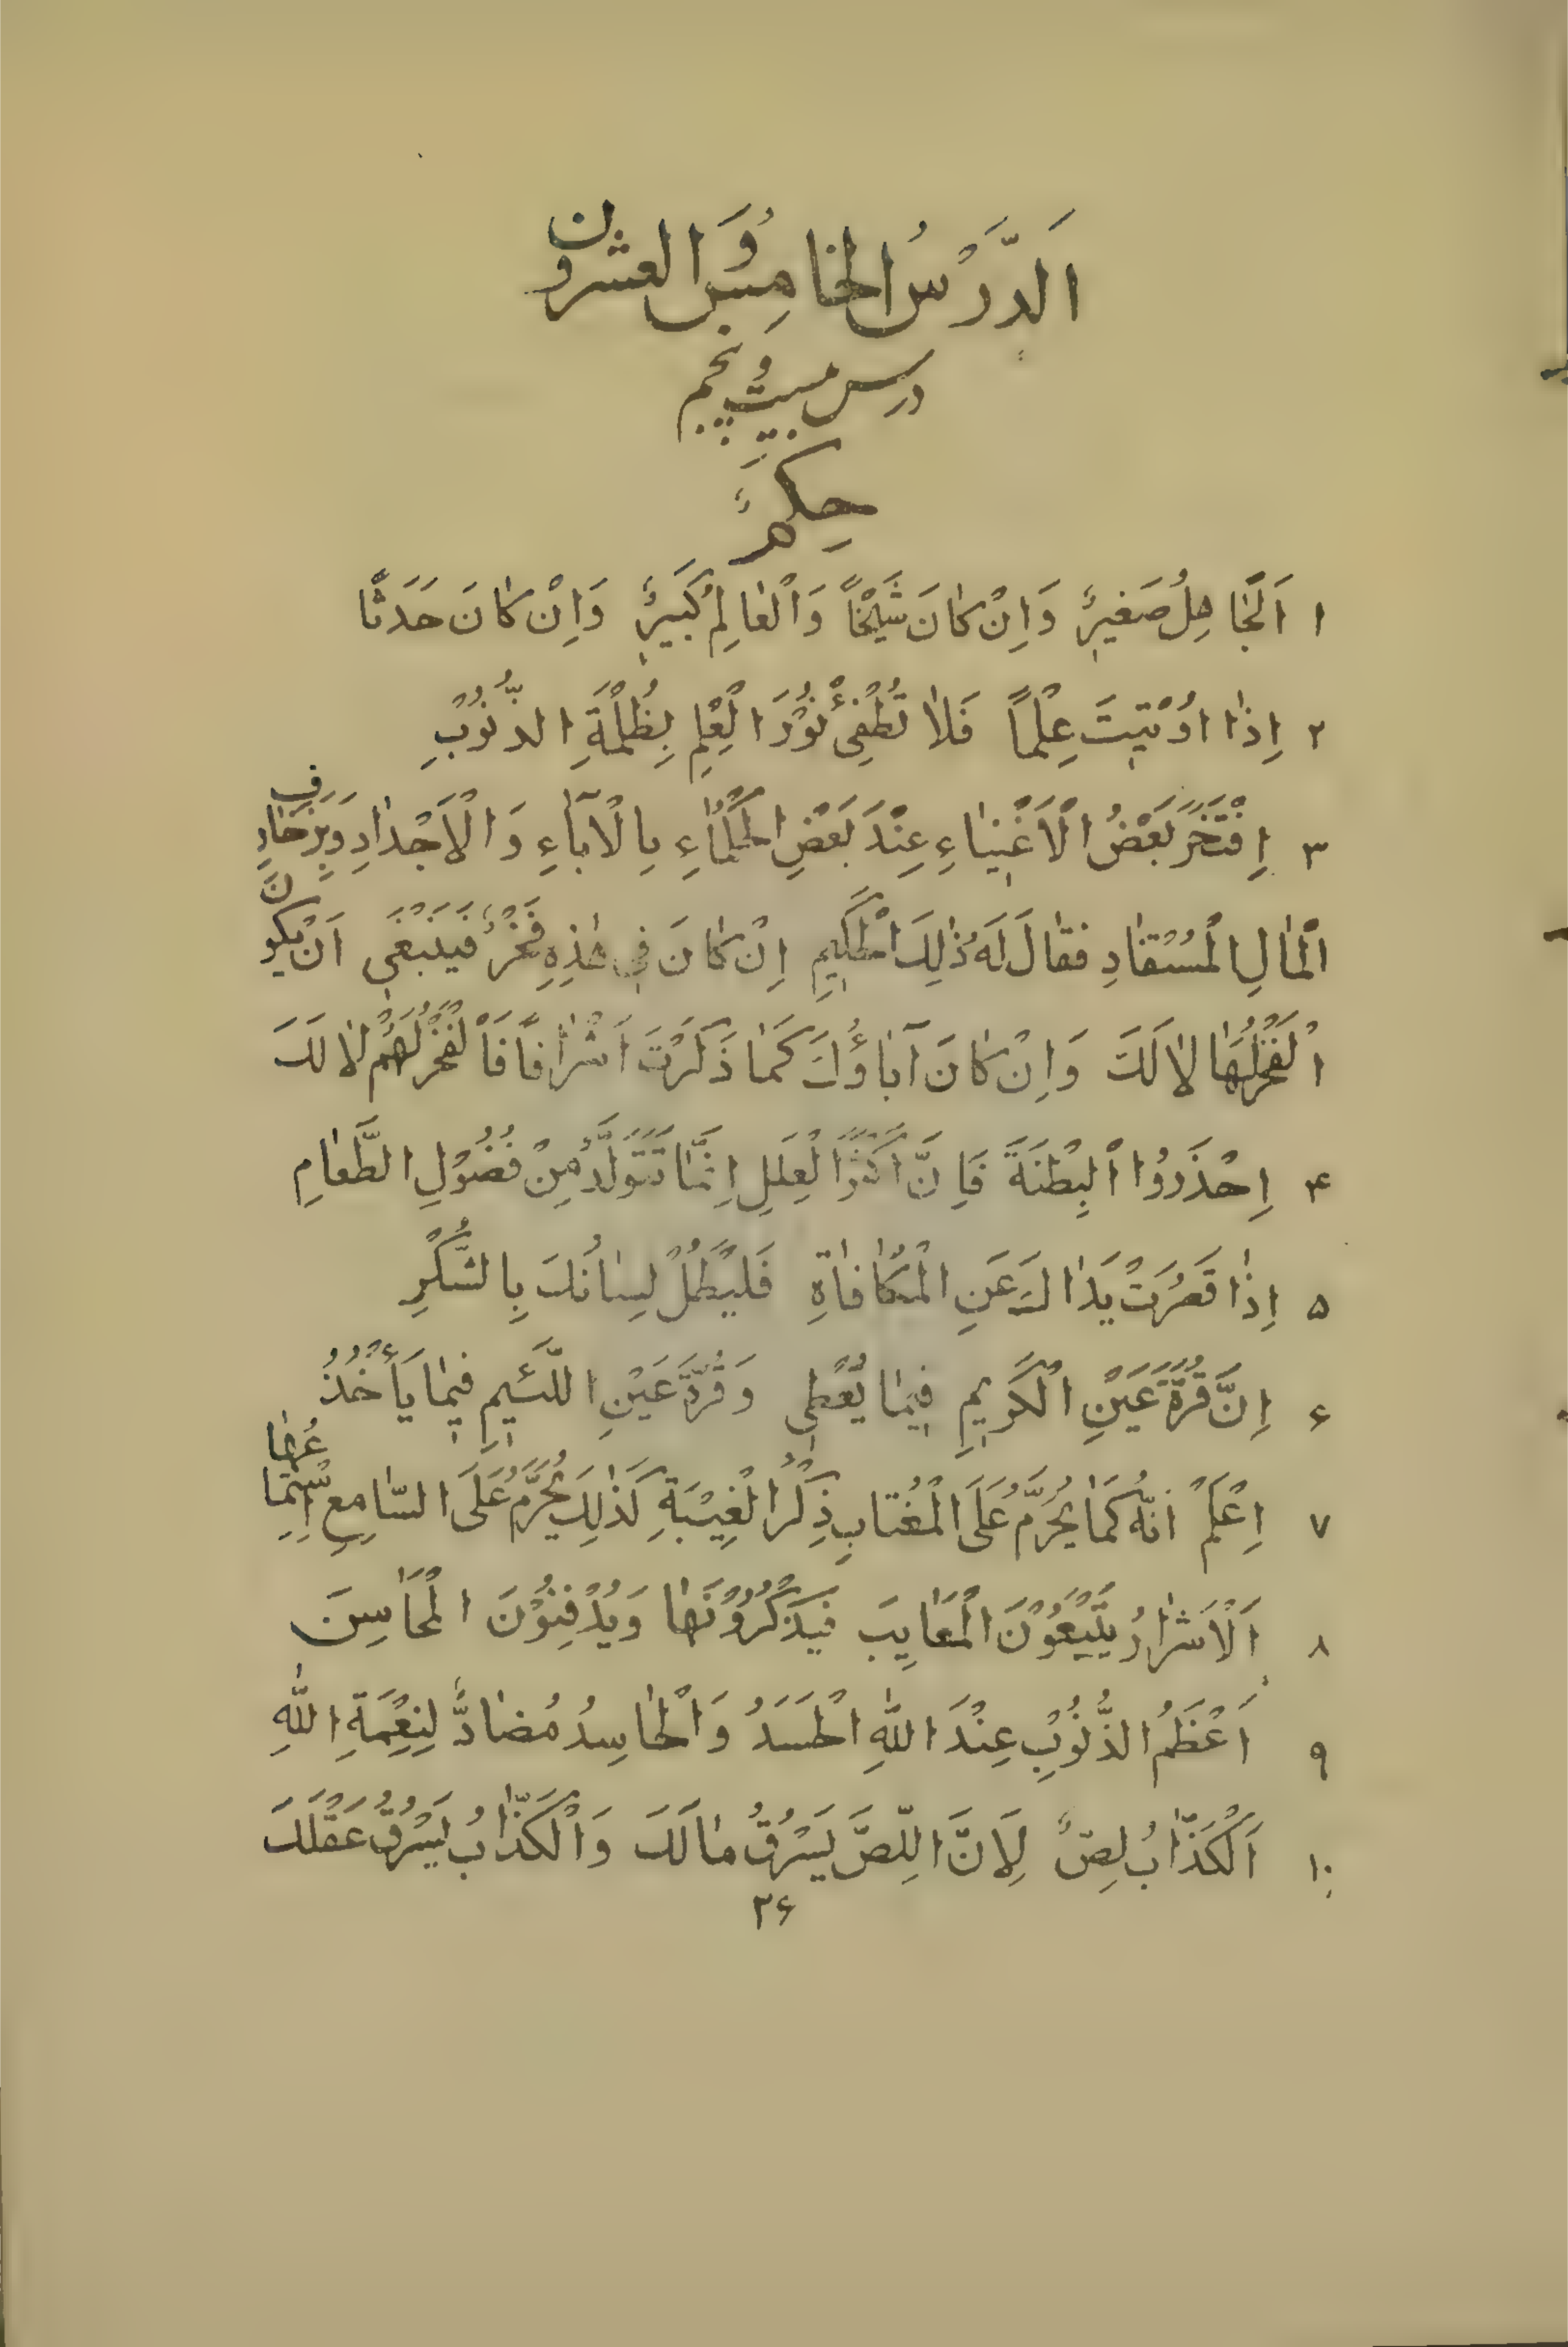 اَلدَّرْسُ الخامِسُ وَ العشرون
درس بیست و پنجم
حِكَمٌ
١ اَلْجٰاهِلُ صَغيرٌ وَاِنْ كٰانَ شَيْخًا وَالْعٰالِمُ كَبيرٌ وَاِنْ كٰانَ حَدَثًا
٢ اِذٰا اوُتيتَ عِلْمًا فَلاٰ تُطْفِئْ نوُرَ الْعِلْمِ بِظُلْمَةِ الذُّنوُبِ
٣ اِفْتَخَرَ بَعْضُ الْاَغْنِيٰاءِ عِنْدَ بَعْضِ الْحُكَمٰاءِ بِالْآبٰاءِ وَالْاَجْدٰادِ وَبِزَخٰارِفِ
الْمٰالِ الْمُسْتَفٰادِ فَقٰالَ لَهُ ذٰلِكَ الْحَكيمِ اِنْ كٰانَ فى هٰذِهِ فَخْرٌ فَيَنْبَغى اَنْ يَكوُنَ
الْفَخْرُ لَهٰا لاٰ لَكَ وَاِنْ كٰانَ آبٰاؤُكَ كَمٰا ذَكَرْتَ اَشْرٰافًا فَالْفَخْرُ لَهُمْ لاٰ لَكَ
۴ اِحْذَروُا الْبِطْنَةَ فَاِنَّ اَكْثَرَ الْعِلَلِ اِنَّمٰا تَتَوَلَّدُ مِنْ فُضوُلِ الطَّعٰامِ
۵ اِذٰا قَصُرَتْ يَدٰاكَ عَنِ الْمُكٰافٰاةِ فَلْيَطُلْ لِسٰانُكَ بِالشُّكْرِ
۶ اِنَّ قُرَّةَ عَيْنِ الْكَريمِ فيمٰا يُعْطى وَقُرَّةَ عَيْنِ اللَّئيمِ فيمٰا يَأْخُذُ
٧ اِعْلَمْ اَنَّهُ كَمٰا يُحَرَّمُ عَلَى الْمُغْتٰابِ ذِكْرُ الْغيبَةِ كَذٰلِكَ يُحَرَّمُ عَلَى السّٰامِعِ اسْتِمٰاعُهٰا
٨ اَلْاَشْرٰارُ يَتَّبِعوُنَ الْمَعٰايِبَ فَيَذْكُروُنَهٰا وَيَدْفِنوُنَ الْمَحٰاسِنَ
٩ اَعْظَمُ الذُّنوُبِ عِنْدَ اللّٰهِ الْحَسَدُ وَالْحٰاسِدُ مُضٰادٌّ لِنِعْمَةِ اللّٰهِ
١٠ اَلْكَذّٰابُ لِصٌّ لِاَنَّ اللِّصَّ يَسْرُقُ مٰالَكَ وَالْكَذّٰابُ يَسْرُقُ عَقْلَكَ
٢۶